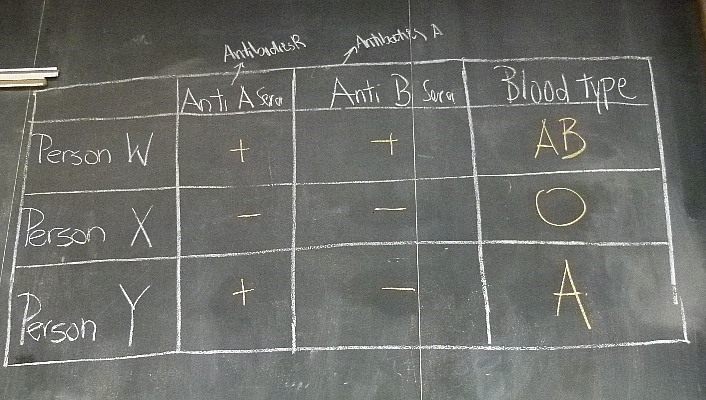 Antibodies B
Antibodies A
Anti A Sera Anti B Sera Blood type
Person W + + AB
Person X - - O
Person Y + - A